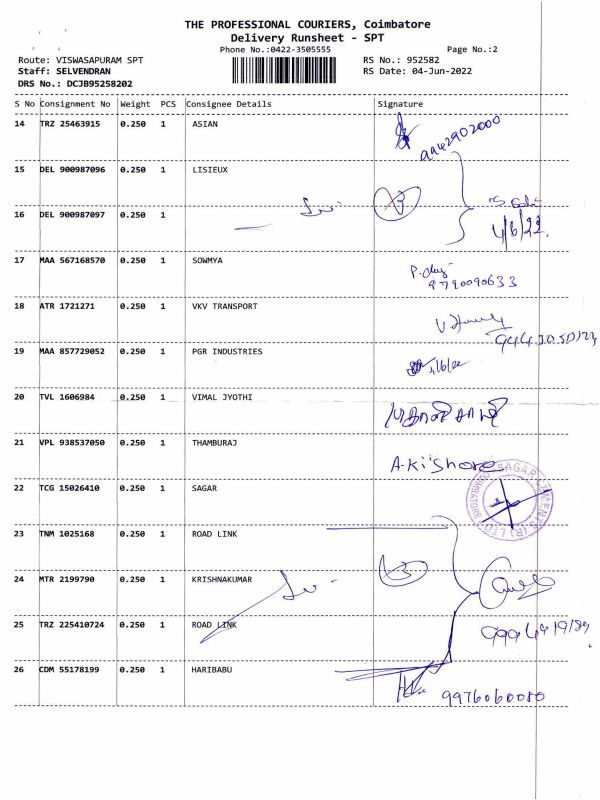 THE PROFESSIONAL COURIERS, Coimbatore
Delivery Runsheet - SPT
Phone No.:0422-3505555
Page No.:2
Route: VISWASAPURAM SPT
RS No.: 952582
Staff: SELVENDRAN
RS Date: 04-Jun-2022
DRS No.: DCJB95258202
S No Consignment No Weight PCS Consignee Details Signature
14 TRZ 25463915 0.250 1 ASIAN
15 DEL 900987096 0.250 1 LISIEUX
16 DEL 900987097 0.250 1
4/6/22.
17 MAA 567168570 0.250 1 SOWMYA
9790090633
18 ATR 1721271 0.250 1 VKV TRANSPORT
19 MAA 857729052 0.250 1 PGR INDUSTRIES
20 TVL 1606984 0.250 1 VIMAL JYOTHI
21 VPL 938537050 0.250 1 THAMBURAJ
A.Kishore
22 TCG 15026410 0.250 1 SAGAR
SAGAR CEMENTS (R) LTD
23 TNM 1025168 0.250 1 ROAD LINK
24 MTR 2199790 0.250 1 KRISHNAKUMAR
25 TRZ 225410724 0.250 1 ROAD LINK
26 CDM 55178199 0.250 1 HARIBABU
9976060080